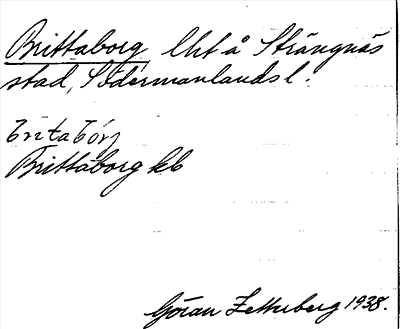 Brittaborg Lht å Strängnäs
stad, Södermanlands l.
Brittaborg kb
Göran Zetterberg 1938.